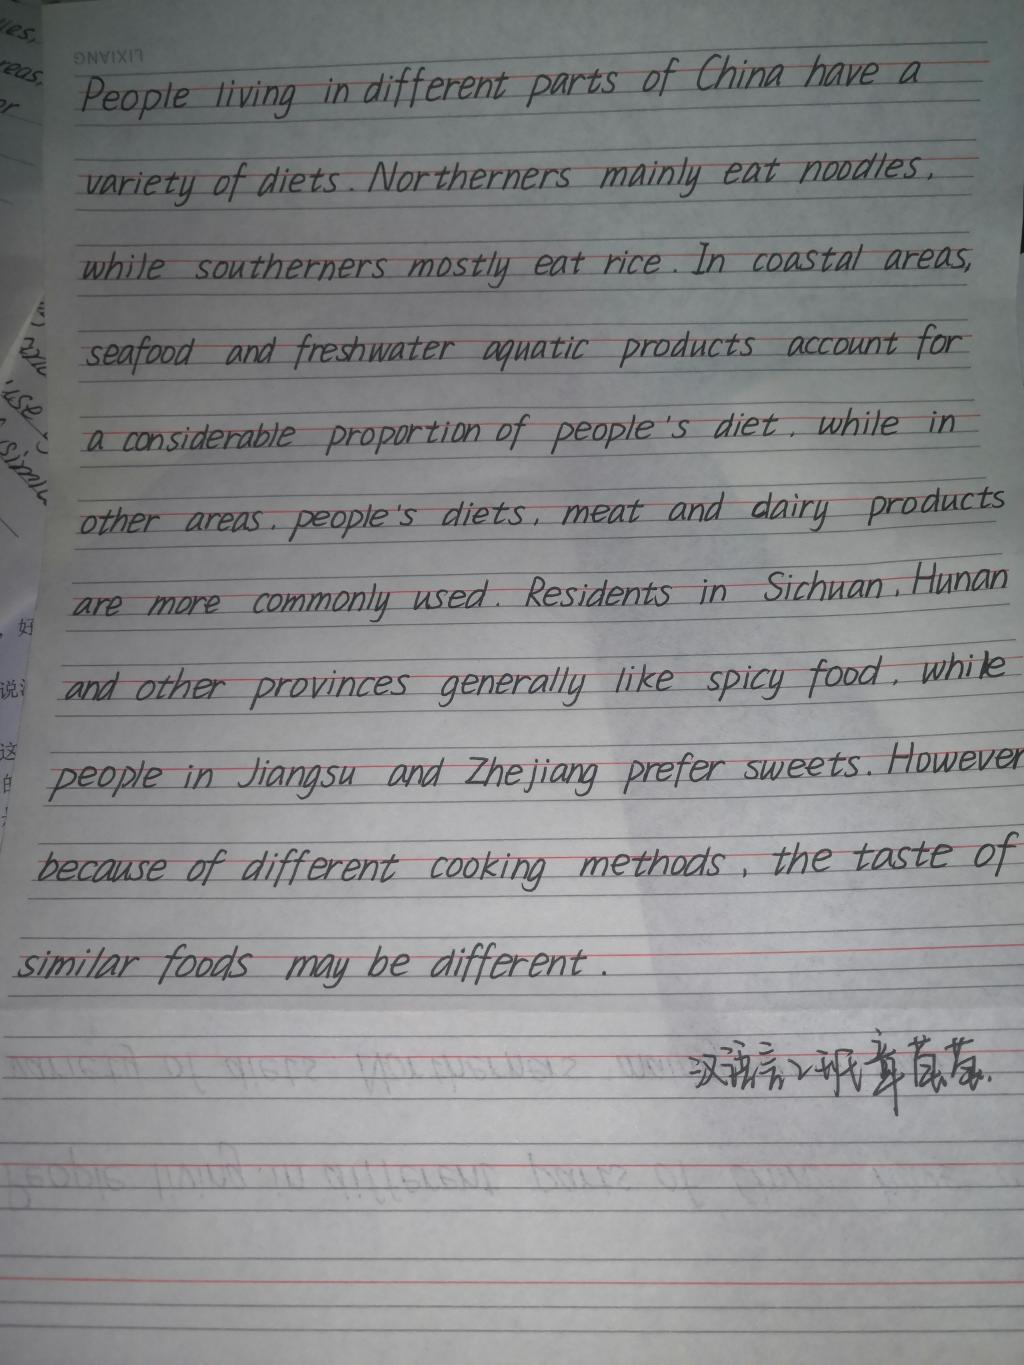 LIXIANG
People living in different parts of China have a
variety of diets. Northerners mainly eat noodles,
while southerners mostly eat rice. In coastal areas,
seafood and freshwater aquatic products account for
a considerable proportion of people's diet, while in
other areas, people's diets, meat and dairy products
are more commonly used. Residents in Sichuan, Hunan
and other provinces generally like spicy food, while
people in Jiangsu and Zhejiang prefer sweets. However
because of different cooking methods, the taste of
similar foods may be different.
汉语言2班章茵茵.